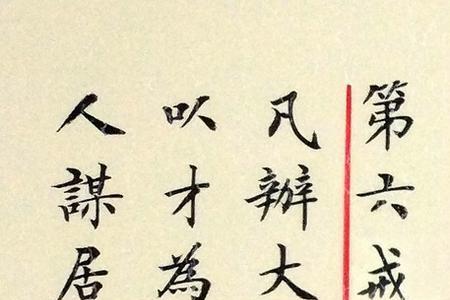 第六戒
凡辦大
以才為
人謀居